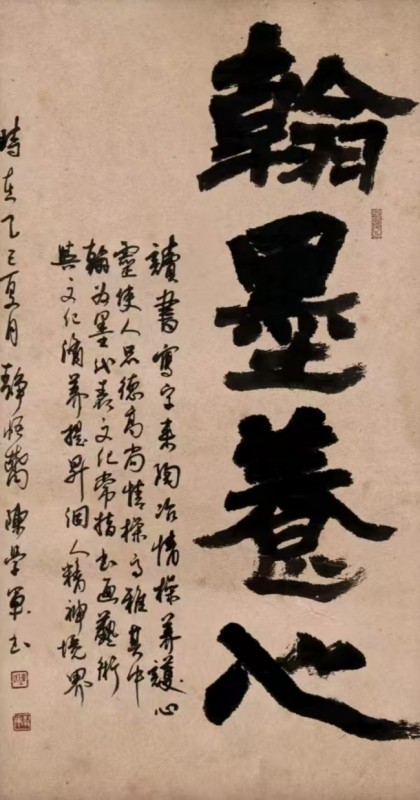 翰墨養心
讀書寫字来陶冶情操养護心
靈使人品德高尚情操高雅其中
翰为墨代表文化常指书画藝術
與文化涵养提昇個人精神境界
時在乙巳夏月靜悟齋陳學軍书